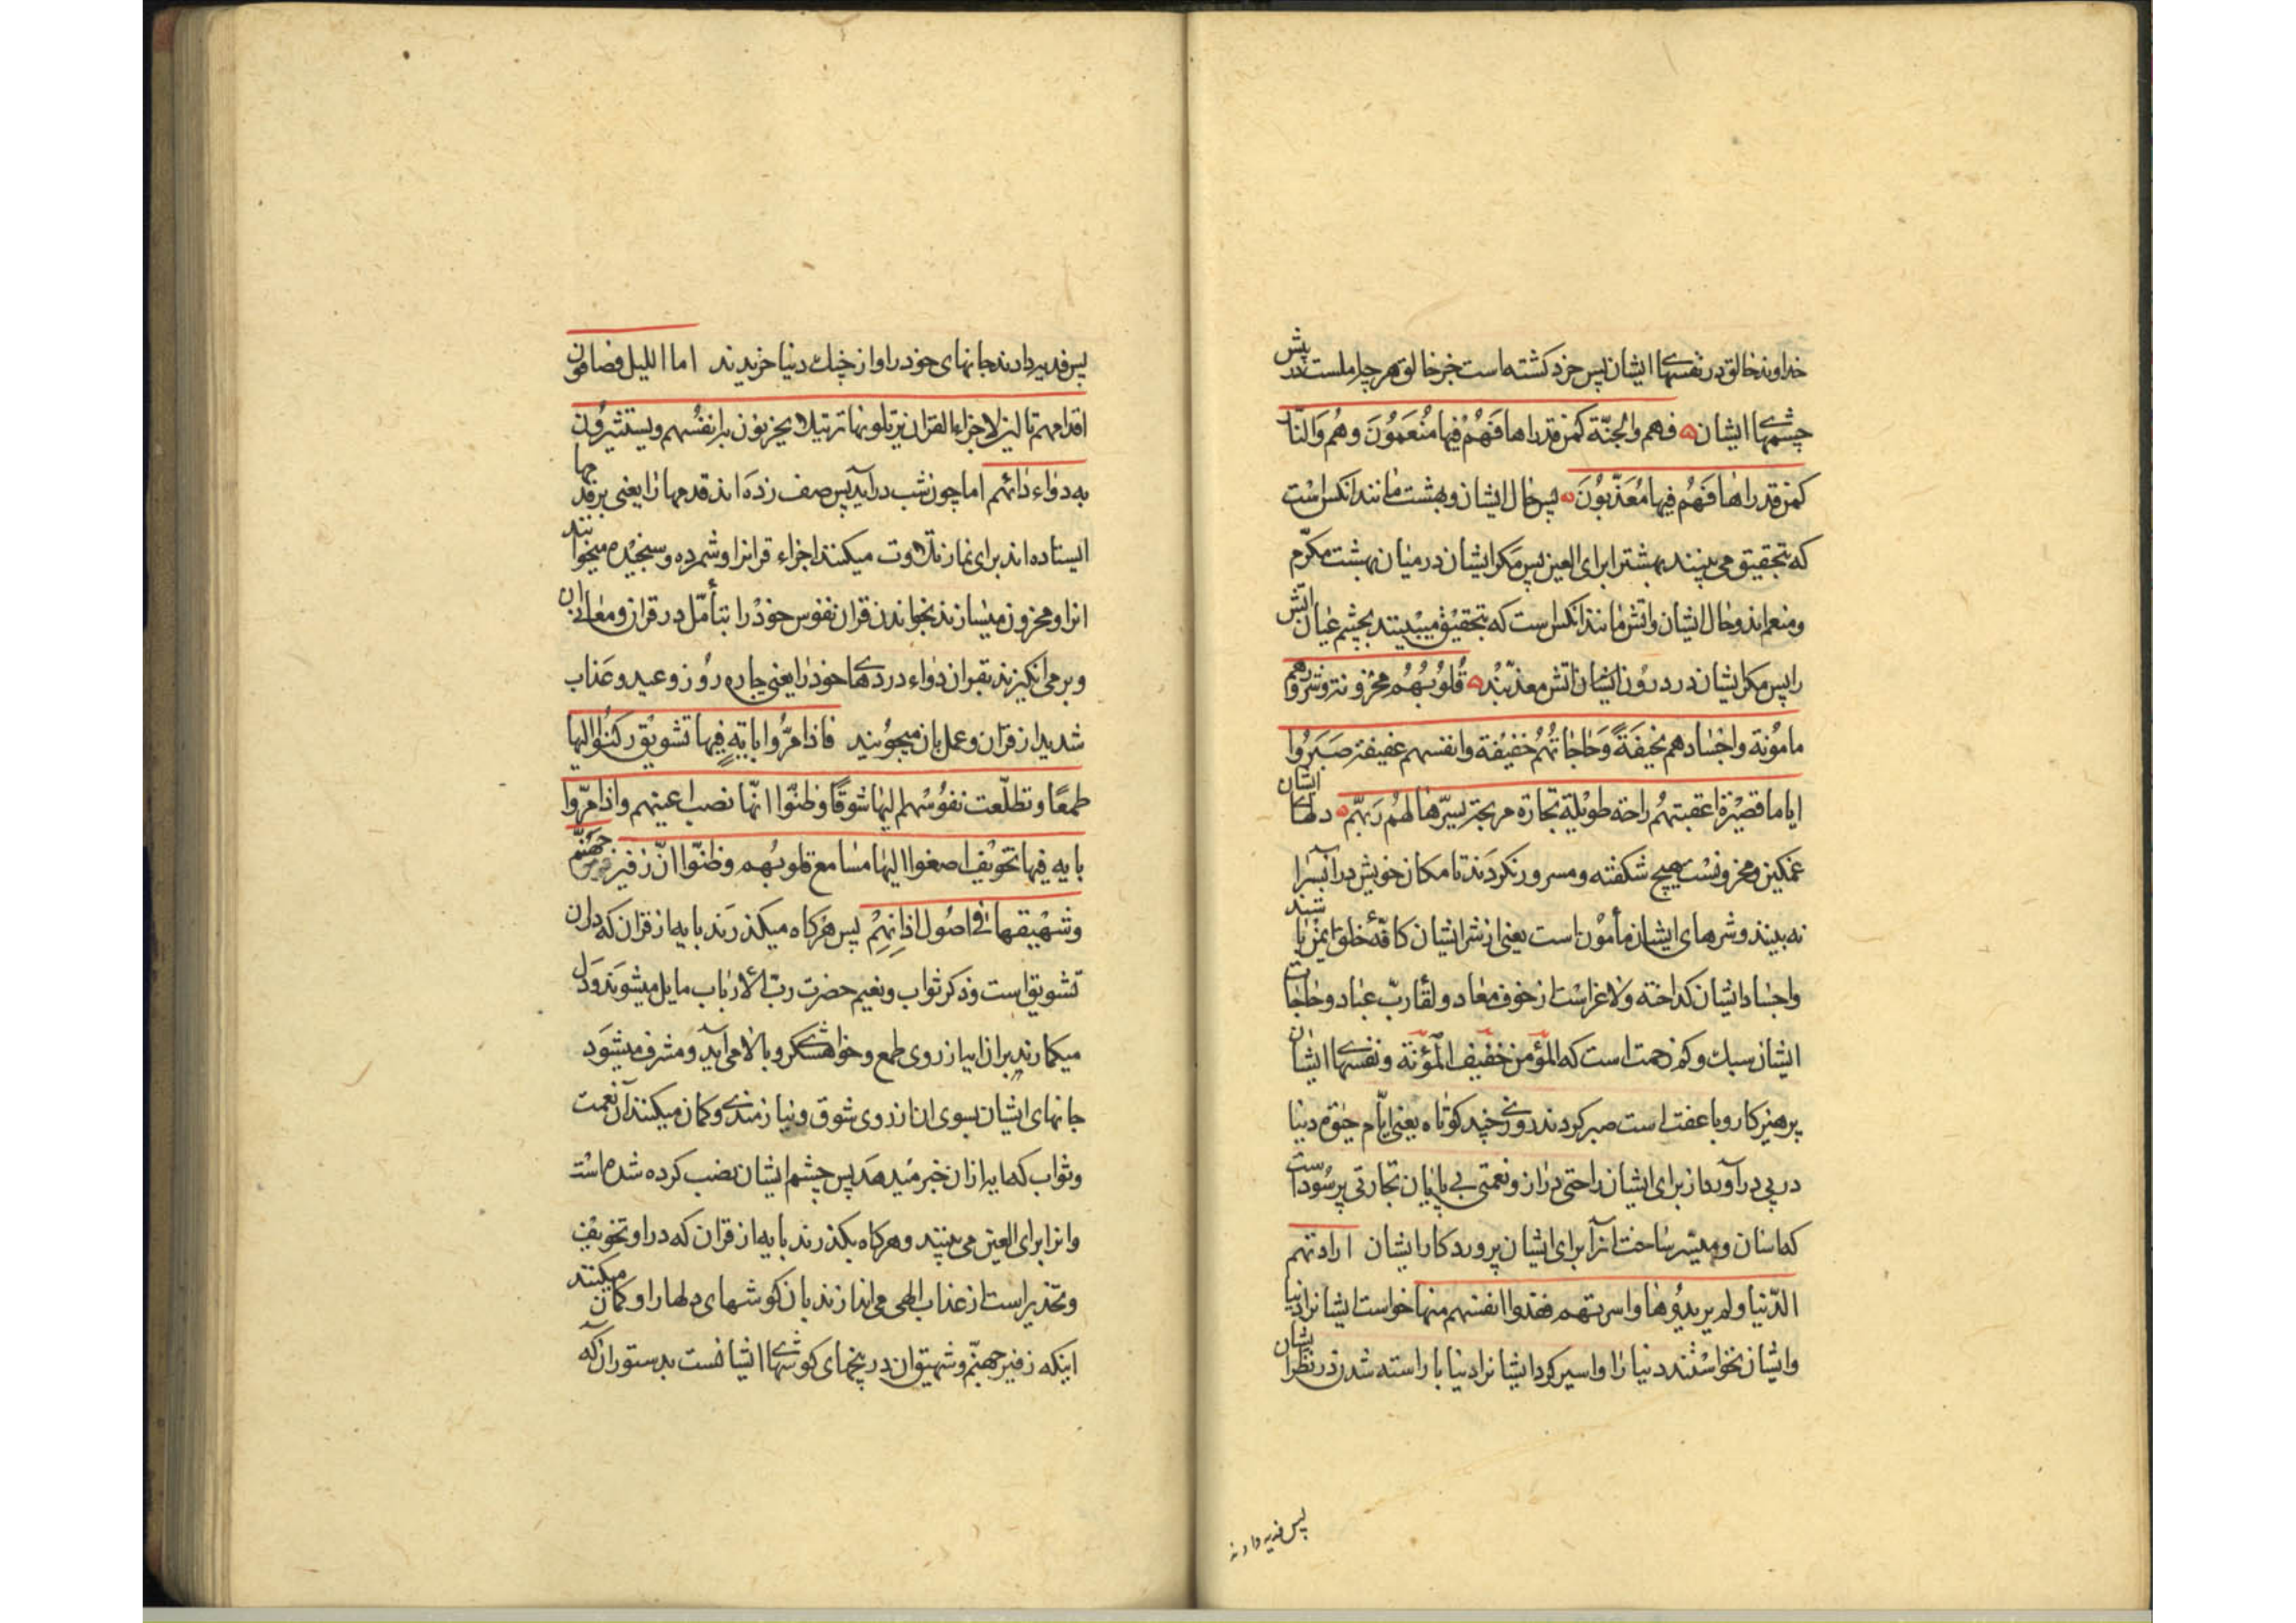 خداوند خالق در نفسهای ایشان پس خرد کشته است جز خالق هر چرا ملست در پیش
چشمهای ایشان فهم والجنّة کمن قدراها فَهُمْ فیها مُنعَمُونَ وهُم وَالنّار
کمن قدراها فَهُم فیها مُعَذّبُونَ پس حال ایشان و بهشت مانند انکس است
که بتحقیق می بینند بهشترا برای العین پس مکر ایشان در میان بهشت مکرّم
و منعم اند و حال ایشان و اتش مانند انکس است که بتحقیق میبینند بچشم عیان اتش
را پس مکر ایشان در درون ایشان اتش معذبند قُلُوبُهُم محزونة وشرورهم
مامُونة واجْسادهم نحیفَةً وَحاجاتُهُم خَفیفَة وانفسهم عفیفة صَبَرُوا
ایاما قصیْرَة اعقبتهُم راحة طویْلة تجارَة مربحة یسّرها لهُم رَبّهم دلهای ایشان
غمکین و محزونست هیچ شکفته و مسرور نکردند تا مکان خویش در انسرا
نه بینند و شرهای ایشان مأمون است یعنی از شر ایشان کافّهٔ خلق ایمن باشند
و اجساد ایشان کداخته و لاغر است از خوف معاد و لقاء ربّ عباد و حاجات
ایشان سبك و کم زحمت است که المؤمن خفیف المؤنة و نفسهای ایشان
پرهیزکار و با عفت است صبر کردند روزی چند کوتاه یعنی ایّام حیوة دنیا
در پی در آورد از برای ایشان راحتی دراز و نعمتی بی پایان تجارتی پر سُود است
که اسان و میسّر ساخت انرا برای ایشان پروردکار ایشان ارادتهم
الدّنیا ولم یریدُوها واسرتهم ففدوا انفسهم منها خواست ایشانرا دنیا
و ایشان نخواستند دنیا را و اسیر کرد ایشانرا دنیا باراسته شدن در نظر ایشان
پس فدیه دادند
پس فدیه دادند جانهای خود را و از چنك دنیا خریدند اما اللیل فصافون
اقدامهم تالین لاجزاء القران یرتلونها ترتیلا یحزنون به انفسُهم ویستثیرُون
به دواء دائهم اما چون شب در آید پس صف زده اند قدمها را یعنی بر قدمها
ایستاده اند برای نماز تلاوت میکنند اجزاء قرانرا و شمرده و سنجیده میخوانند
انرا و محزون میسازند بخواندن قران نفوس خود را بتأمّل در قران و معانی ان
و بر می انکیزند بقران دواء دردهای خود را یعنی چاره روز وعید و عَذاب
شدید از قران و عمل بان میجویند فاذا مَرُّوا بایة فیها تشویق رکنُوا الیها
طمعًا و تطلّعت نفُوسُهم الیها شوقًا وظنّوا انّها نصب اعینهم واذا مرّوا
بایه فیها تخویْف اصغوا الیها مسامع قلوبُهم وظنّوا انّ زفیر جهنّم
وشهیْقها فی اصُول اذانِهِمْ پس هر کاه میکذرَند بایه از قران که در ان
تشویق است و ذکر ثواب و نعیم حضرت ربّ الارباب مایل میشوند و دل
میکمارند بر ان ایه از روی طمع و خواهشکری و بالا می آید و مشرف میشود
جانهای ایشان بسوی ان از روی شوق و نیازمندی و کمان میکنند آن نعمت
و ثواب که ایه از ان خبر میدهد پس چشم ایشان نصب کرده شده است
و انرا برای العین می بینند و هر کاه بکذرند بایه از قران که در او تخویف
و تحذیر است از عذاب الهی می اندازند بان کوشهای دلها را و کمان میکنند
اینکه زفیر جهنّم و شهیق ان در بیخهای کوشهای ایشانست بدستور آنکه